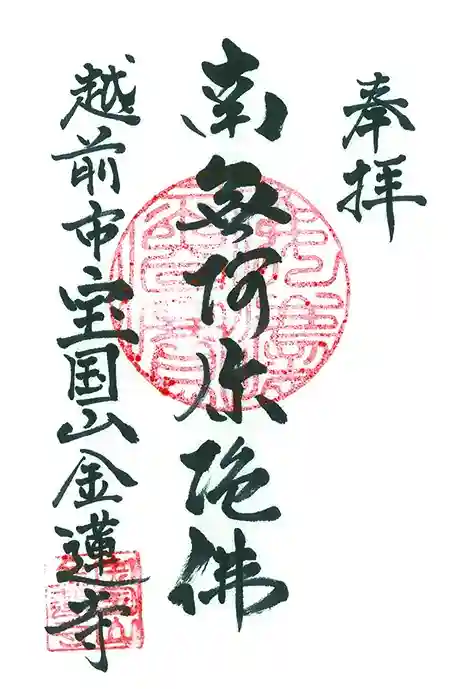 奉拝
南無阿弥陀佛
越前市宝国山金蓮寺